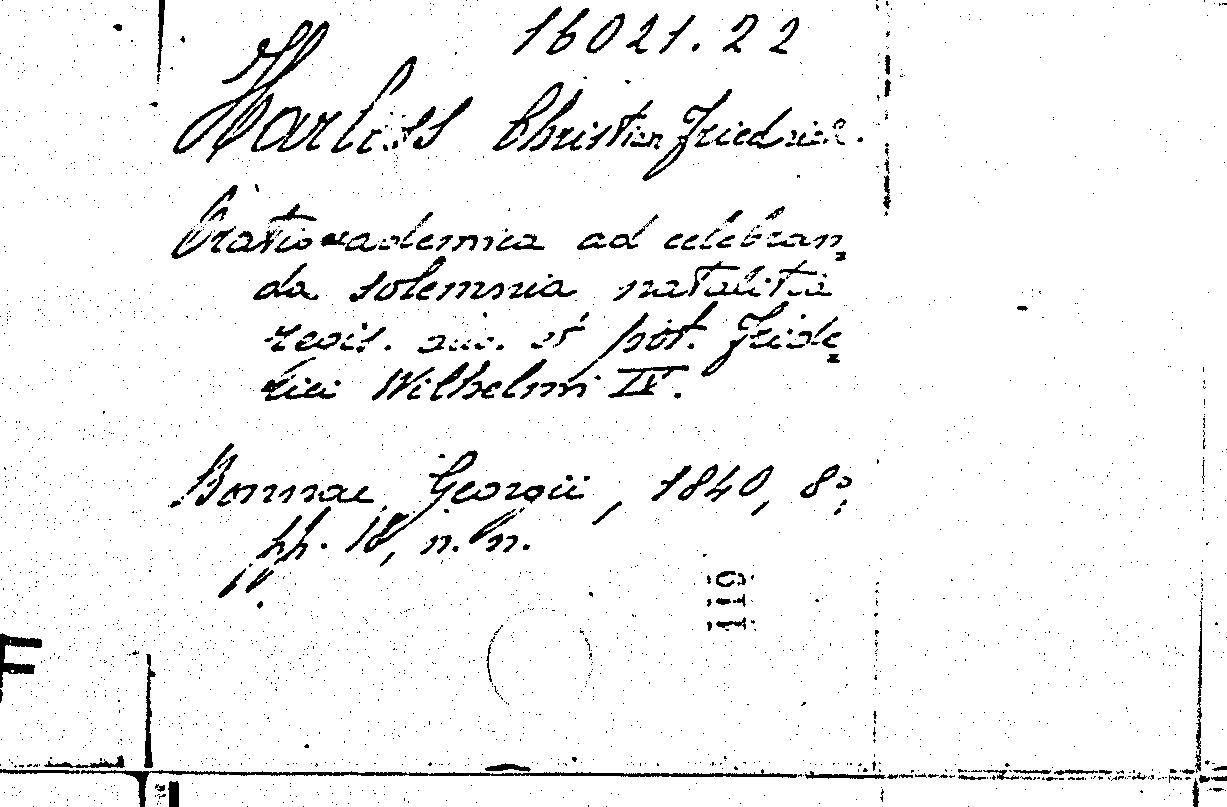 16021.22
Harless Christian Friedrich.
Oratio academica ad celebran=
da solemnia natalitia
regis. aug. et pot. Fride=
rici Wilhelmi IV.
Bonnae, Georgii, 1840, 8°,
pp. 18, n. n.
110
F